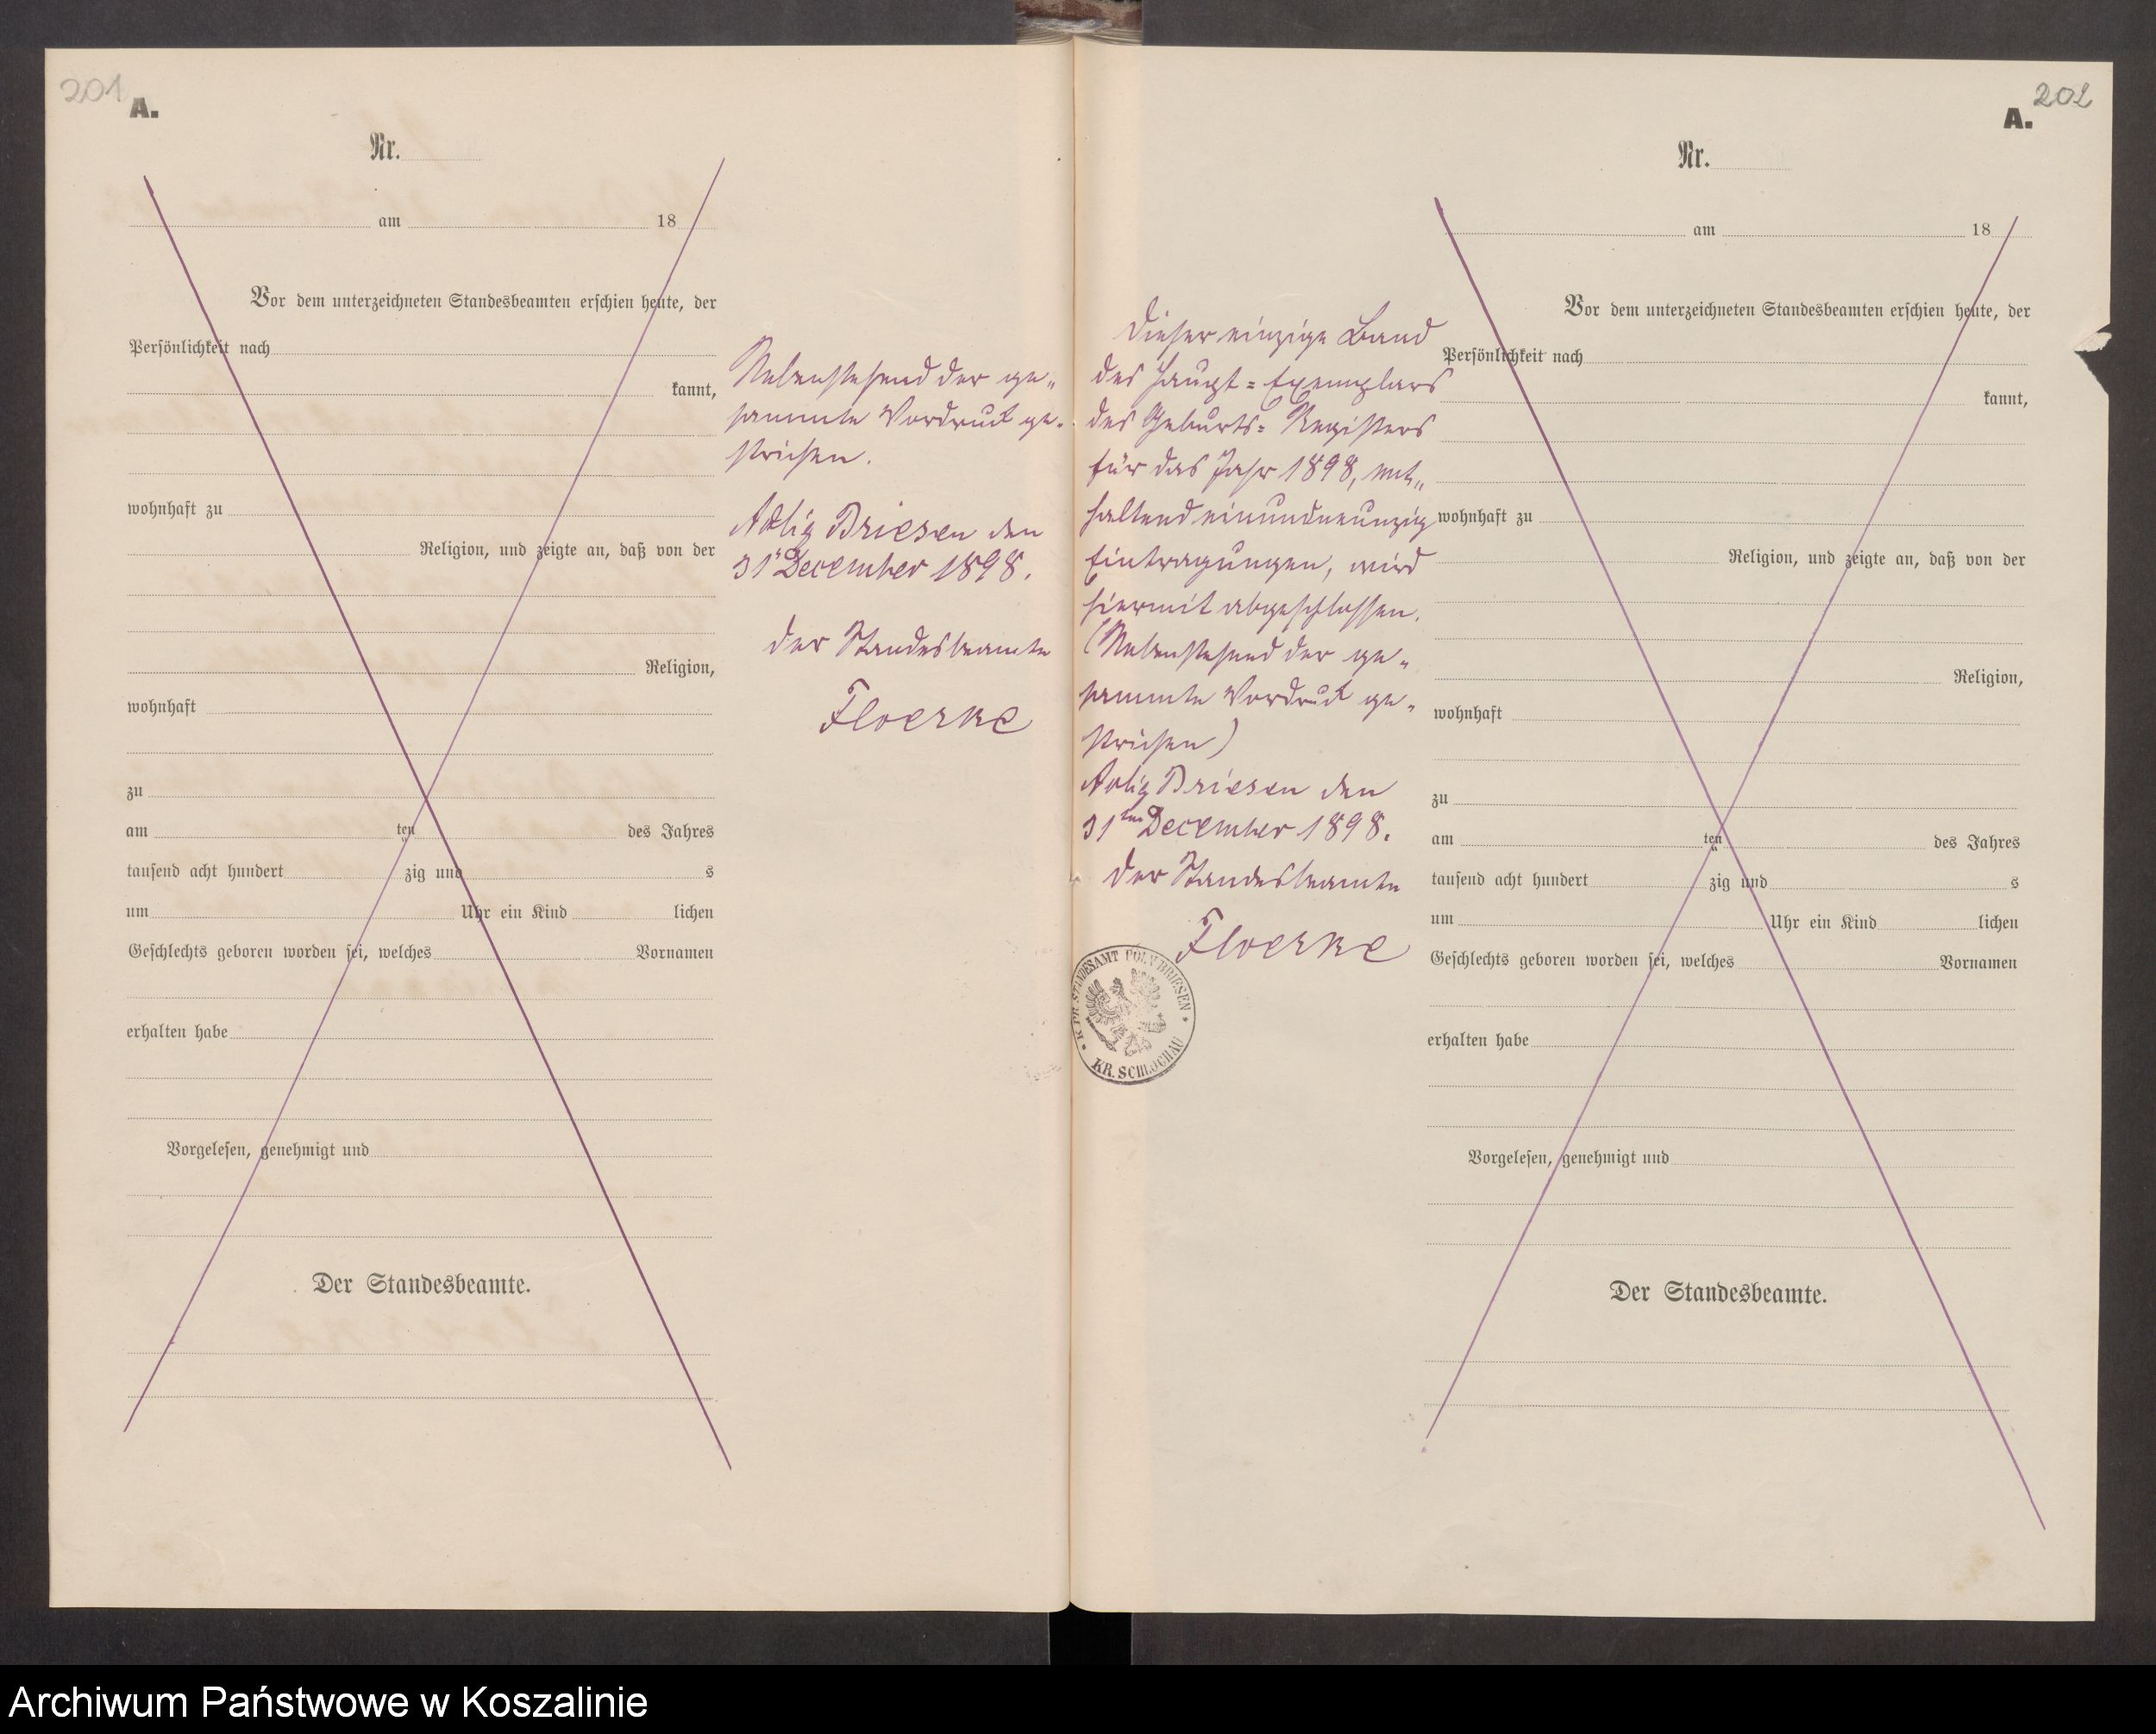 201
A.
Nr.
am 18
Vor dem unterzeichneten Standesbeamten erschien heute, der
Persönlichkeit nach
kannt,
wohnhaft zu
Religion, und zeigte an, daß von der
Religion,
wohnhaft
zu
am ten des Jahres
tausend acht hundert zig und s
um Uhr ein Kind lichen
Geschlechts geboren worden sei, welches Vornamen
erhalten habe
Vorgelesen, genehmigt und
Der Standesbeamte.
Nebenstehend der ge„
sammte Vordruck ge„
strichen.
Adlig Briesen den
31t December 1898.
der Standesbeamte
Floerke
202
A.
Dieser einzige Band
des Haupt=Exemplars
des Geburts=Registers
für das Jahr 1898, ent„
haltend einundneunzig
Eintragungen, wird
hiermit abgeschlossen.
(Nebenstehend der ge„
sammte Vordruck ge„
strichen)
Adlig Briesen den
31ten December 1898.
Der Standesbeamte
Floerke
K. PR. STANDESAMT POLN. BRIESEN
KR. SCHLOCHAU
Nr.
am 18
Vor dem unterzeichneten Standesbeamten erschien heute, der
Persönlichkeit nach
kannt,
wohnhaft zu
Religion, und zeigte an, daß von der
Religion,
wohnhaft
zu
am ten des Jahres
tausend acht hundert zig und s
um Uhr ein Kind lichen
Geschlechts geboren worden sei, welches Vornamen
erhalten habe
Vorgelesen, genehmigt und
Der Standesbeamte.
Archiwum Państwowe w Koszalinie